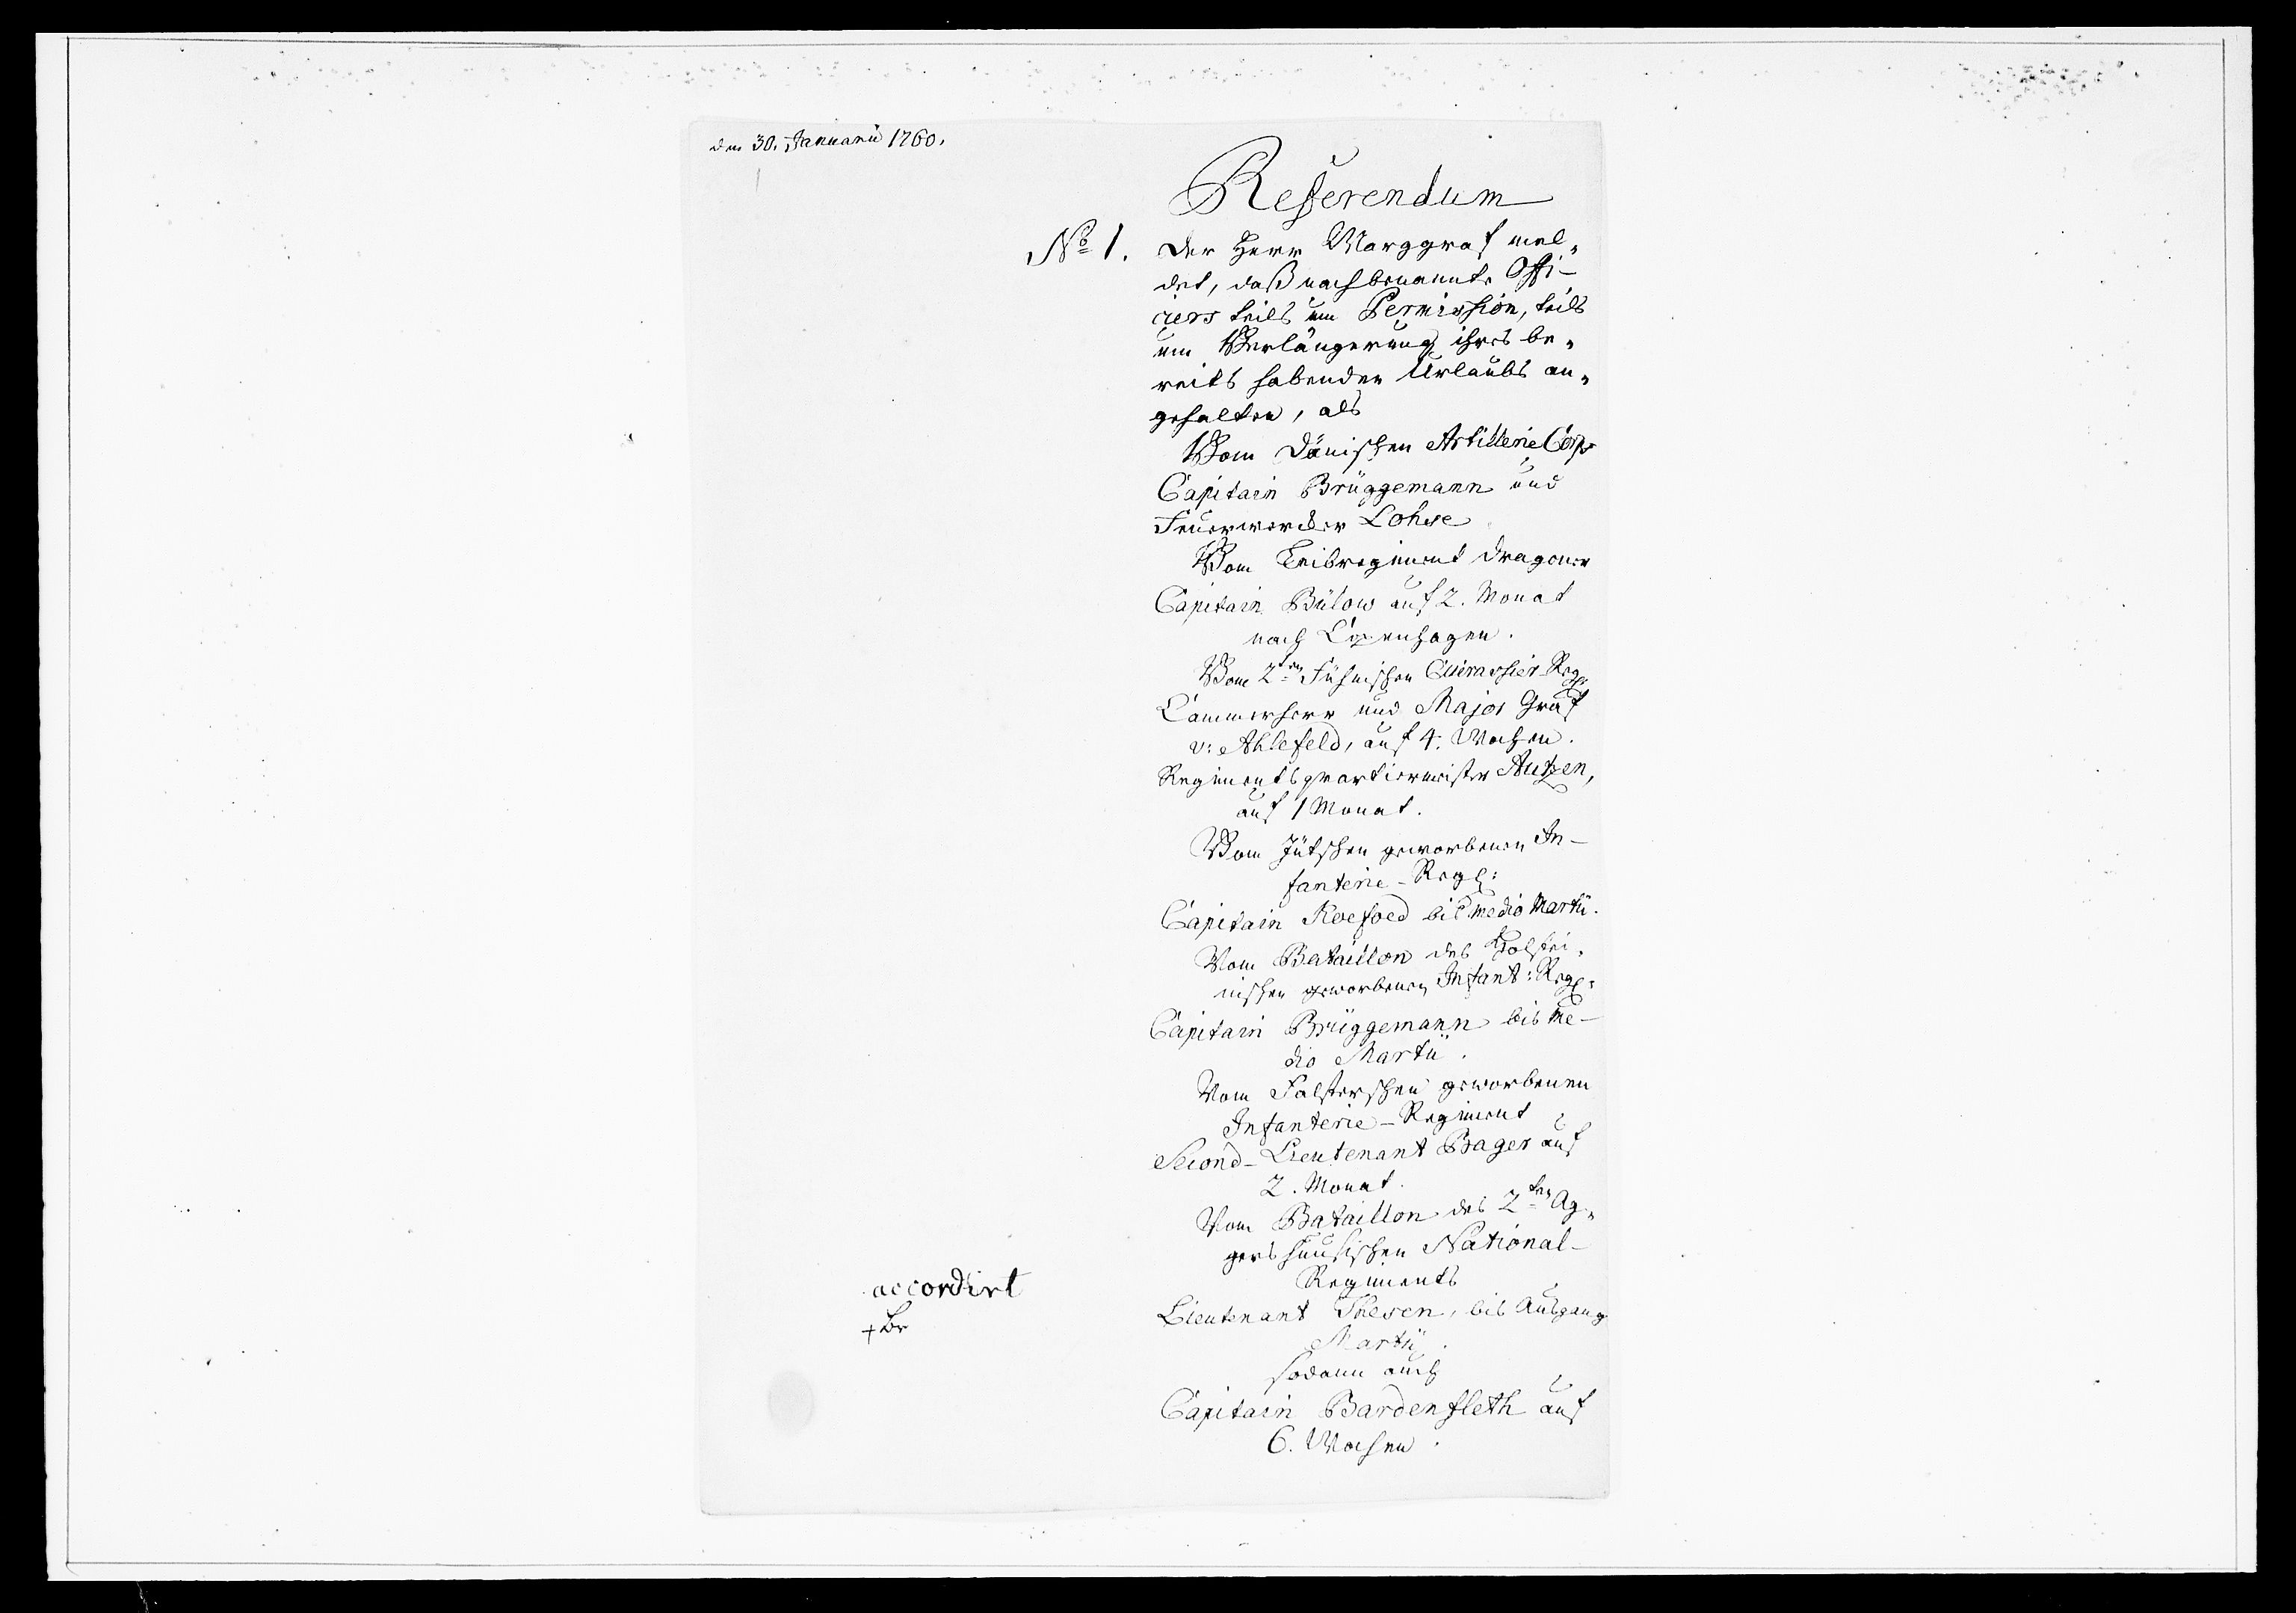 den 30. Januarii 1760.
Referendum
No 1. Der Herr Marggraf mel-
det, daß nachbenannte Offi-
ciers teils um Permission, teils
um Verlängerung ihres be-
reits habenden Urlaubs an-
gehalten, als
Vom Dänischen Artillerie Corps
Capitain Brüggemann und
Feuerwercker Lohse
Vom Leibregiment Dragoner
Capitain Bülow auf 2. Monat
nach Copenhagen.
Vom 2ten Fühnischen Cuirassier-Reg:
Cammerherr und Major Graf
v: Ahlefeld, auf 4. Wochen.
Regimentsquartiermeister Autzen,
auf 1 Monat.
Vom Jütschen geworbenen In-
fanterie-Reg:
Capitain Koefoed bis medio Martii.
Vom Bataillon des Holstei-
nischen geworbenen Infant: Reg:
Capitain Brüggemann bis me-
dio Martii.
Vom Falsterschen geworbenen
Infanterie-Regiment
Second-Lieutenant Bager auf
2. Monat.
Vom Bataillon des 2ten Ag-
gershuusischen National-
Regiments
accordirt
Lieutenant Thesen, bis Ausgang
Martii.
sodann auch
Capitain Bardenfleth auf
6. Wochen.